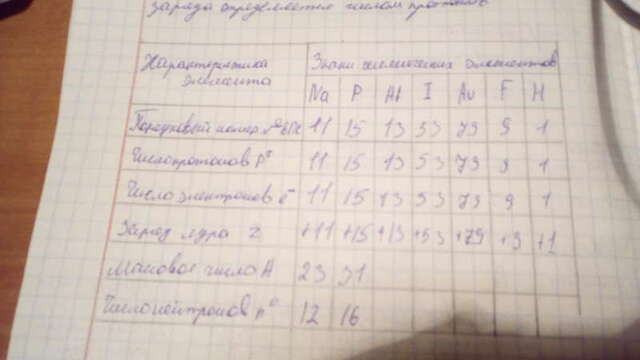 заряда определяется числом протонов
Характеристика элемента
Знаки химических элементов
Na P Al I Au F H
Порядковый номер 11 15 13 53 79 9 1
Число протонов p⁺ 11 15 13 53 79 9 1
Число электронов e⁻ 11 15 13 53 79 9 1
Заряд ядра Z +11 +15 +13 +53 +79 +9 +1
Массовое число A 23 31
Число нейтронов n⁰ 12 16